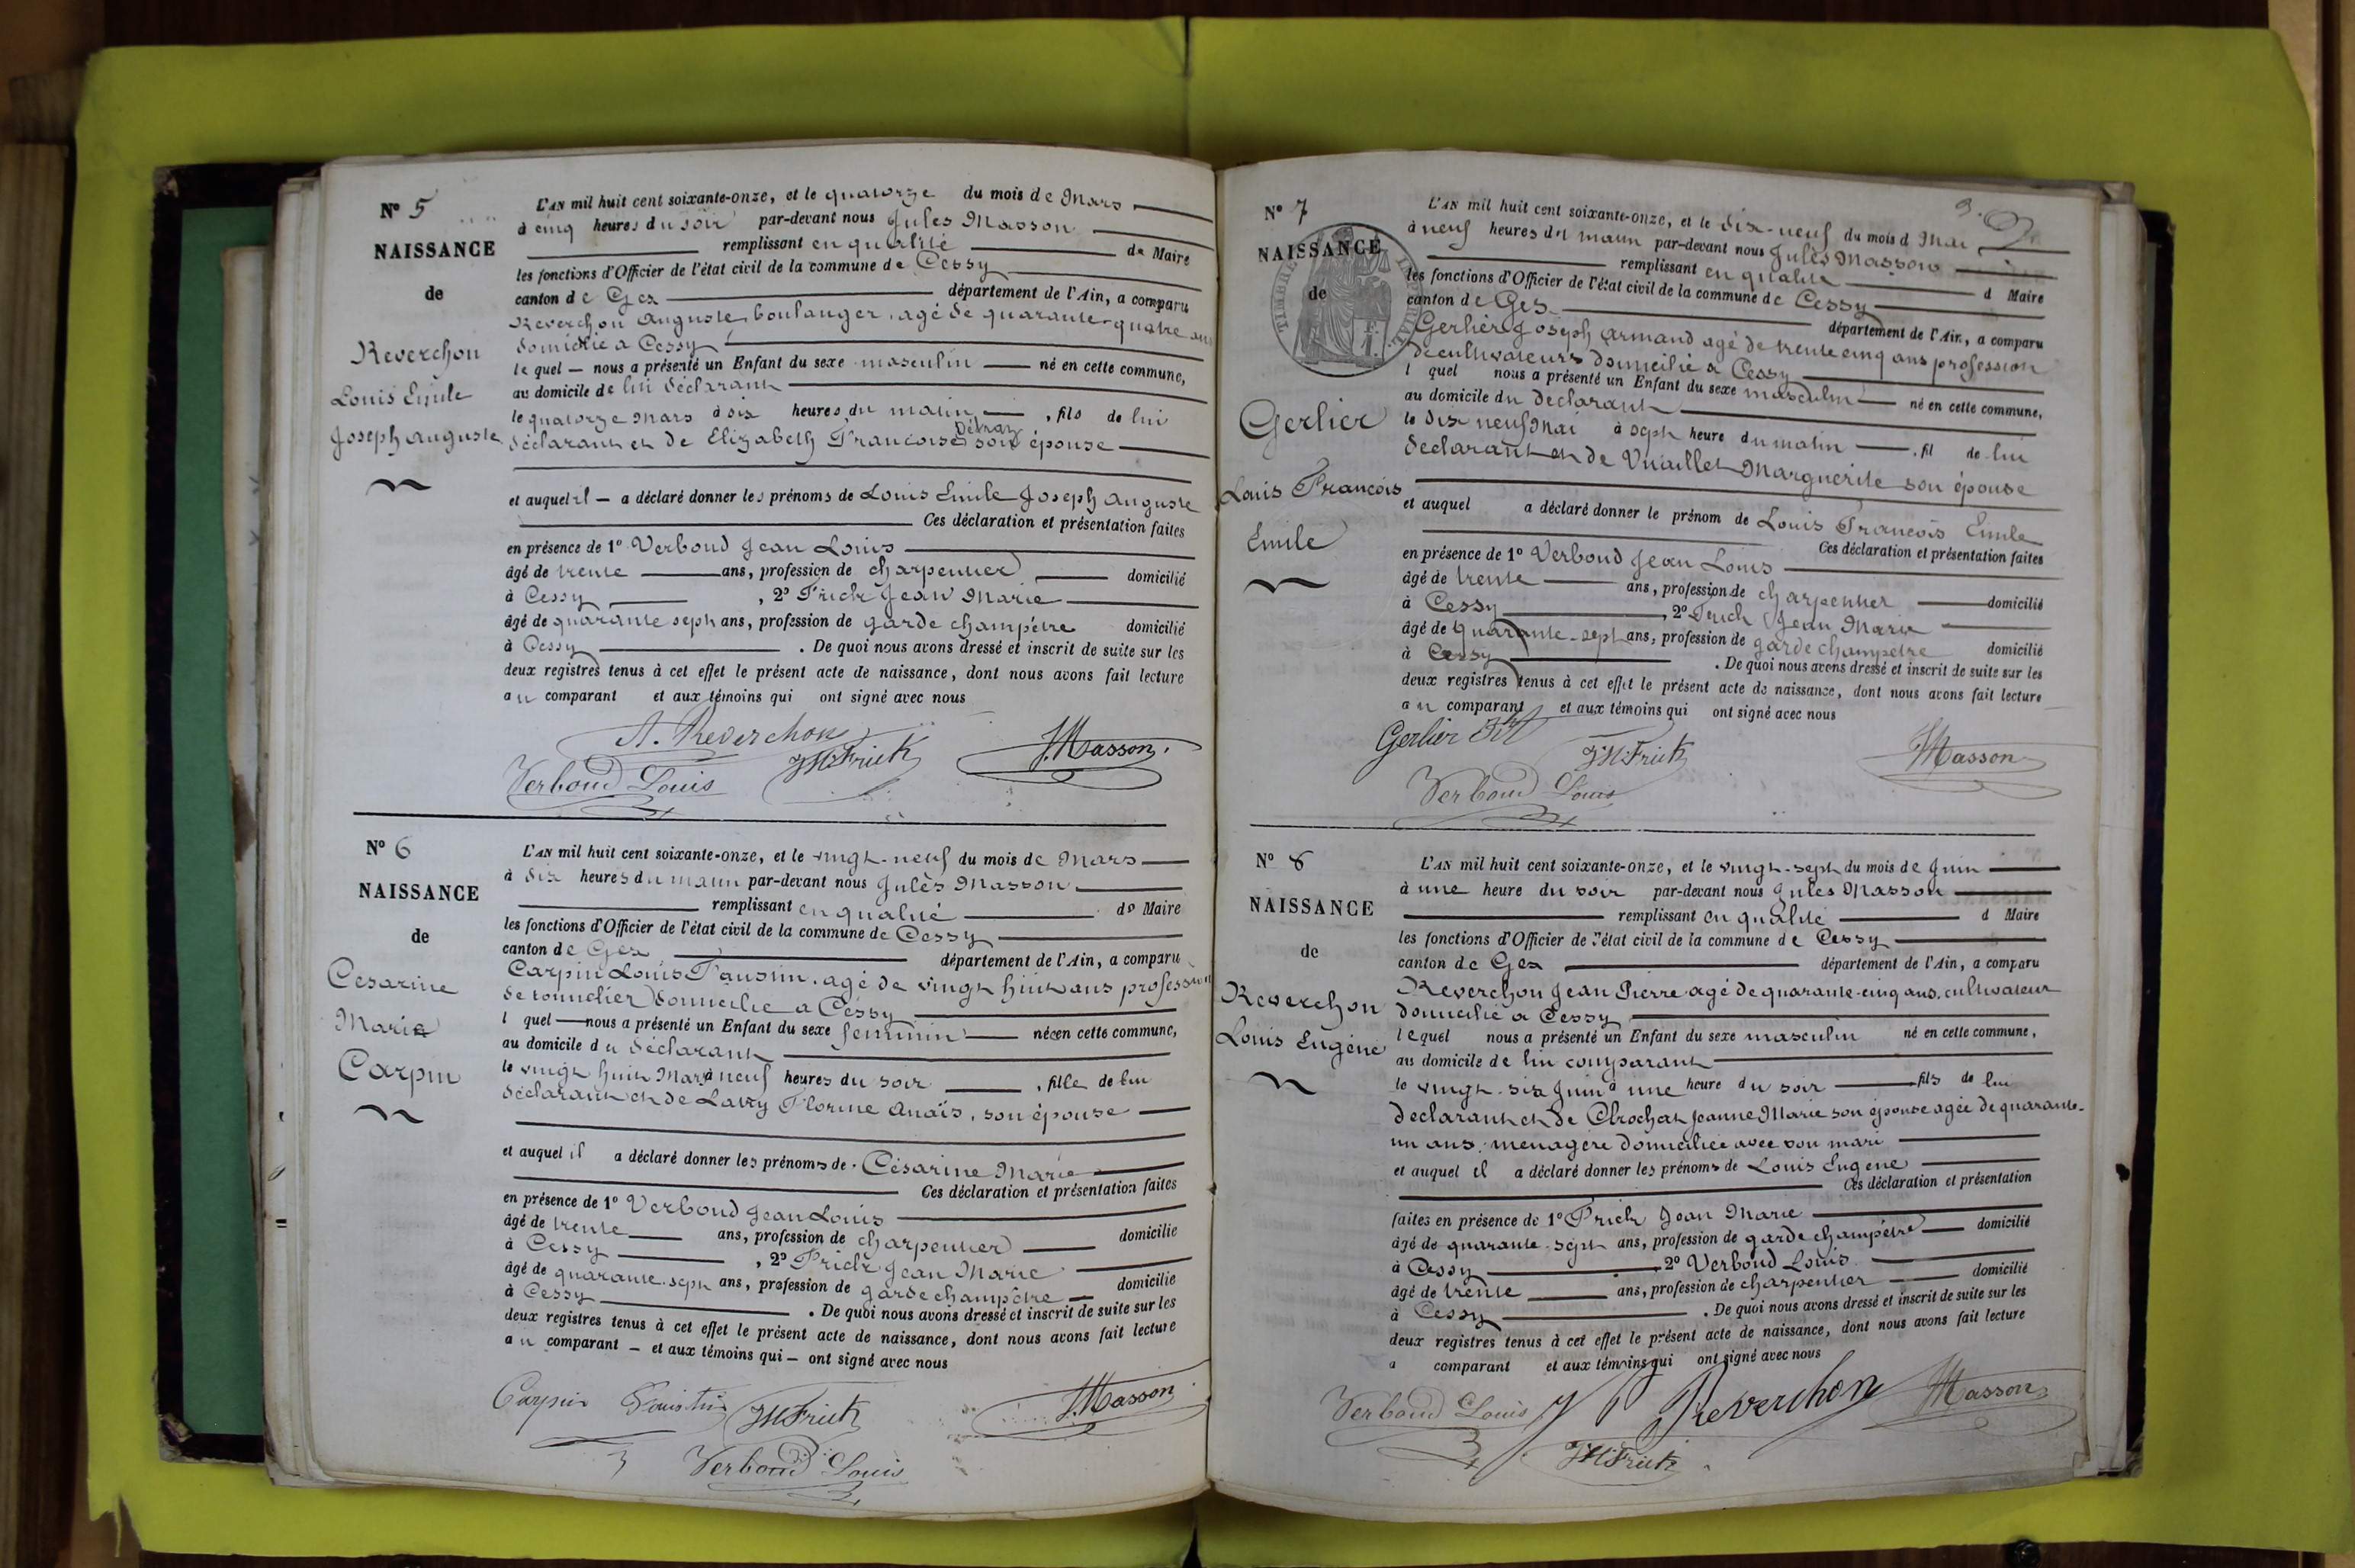 N° 5
NAISSANCE
de
Reverchon
Louis Emile
Joseph Auguste
L'AN mil huit cent soixante-onze, et le quatorze du mois de Mars
à cinq heures du soir par-devant nous Jules Masson
remplissant en qualité de Maire
les fonctions d'Officier de l'état civil de la commune de Cessy
canton de Gex département de l'Ain, a comparu
Reverchon Auguste, boulanger, agé de quarante-quatre ans
domicilié à Cessy
le quel — nous a présenté un Enfant du sexe masculin né en cette commune,
au domicile de lui déclarant
le quatorze Mars à six heures du matin, fils de lui
Détraz
déclarant et de Elizabeth Francoise son épouse
et auquel il — a déclaré donner les prénoms de Louis Emile Joseph Auguste
Ces déclaration et présentation faites
en présence de 1° Verboud Jean Louis
âgé de trente ans, profession de charpentier domicilié
à Cessy, 2° Frick Jean Marie
âgé de quarante sept ans, profession de garde champêtre domicilié
à Cessy. De quoi nous avons dressé et inscrit de suite sur les
deux registres tenus à cet effet le présent acte de naissance, dont nous avons fait lecture
au comparant et aux témoins qui ont signé avec nous
A. Reverchon
Verboud Louis JM Frick J. Masson
N° 6
NAISSANCE
de
Cesarine
Marie
Carpin
L'AN mil huit cent soixante-onze, et le vingt-neuf du mois de Mars
à dix heures du matin par-devant nous Jules Masson
remplissant en qualité de Maire
les fonctions d'Officier de l'état civil de la commune de Cessy
canton de Gex département de l'Ain, a comparu
Carpin Louis Faustin, agé de vingt huit ans profession
de tonnelier domicilié à Cessy
l quel — nous a présenté un Enfant du sexe feminin née en cette commune,
au domicile du déclarant
le vingt huit Mars à neuf heures du soir, fille de lui
déclarant et de Lavry Florine Anaïs, son épouse
et auquel il a déclaré donner les prénoms de Césarine Marie
Ces déclaration et présentation faites
en présence de 1° Verboud Jean Louis
âgé de trente ans, profession de charpentier domicilié
à Cessy, 2° Frick Jean Marie
âgé de quarante-sept ans, profession de garde champêtre domicilié
à Cessy. De quoi nous avons dressé et inscrit de suite sur les
deux registres tenus à cet effet le présent acte de naissance, dont nous avons fait lecture
au comparant — et aux témoins qui — ont signé avec nous
Carpin Faustin JM Frick J. Masson
Verboud Louis
N° 7
NAISSANCE
de
Gerlier
Louis Francois
Emile
L'AN mil huit cent soixante-onze, et le dix-neuf du mois d Mai
à neuf heures du matin par-devant nous Jules Masson
remplissant en qualité d Maire
les fonctions d'Officier de l'état civil de la commune de Cessy
canton de Gex département de l'Ain, a comparu
Gerlier Joseph Armand agé de trente cinq ans profession
de cultivateur domicilié à Cessy
l quel nous a présenté un Enfant du sexe masculin né en cette commune,
au domicile du déclarant
le dix neuf Mai à sept heure du matin, fil de lui
déclarant et de Vuaillet Marguerite son épouse
et auquel a déclaré donner le prénom de Louis Francois Emile
Ces déclaration et présentation faites
en présence de 1° Verboud Jean Louis
âgé de trente ans, profession de charpentier domicilié
à Cessy, 2° Frick Jean Marie
âgé de quarante-sept ans, profession de garde champêtre domicilié
à Cessy. De quoi nous avons dressé et inscrit de suite sur les
deux registres tenus à cet effet le présent acte de naissance, dont nous avons fait lecture
au comparant et aux témoins qui ont signé avec nous
Gerlier JM Frick J Masson
Verboud Louis
N° 8
NAISSANCE
de
Reverchon
Louis Eugène
L'AN mil huit cent soixante-onze, et le vingt-sept du mois de Juin
à une heure du soir par-devant nous Jules Masson
remplissant en qualité d Maire
les fonctions d'Officier de l'état civil de la commune de Cessy
canton de Gex département de l'Ain, a comparu
Reverchon Jean Pierre agé de quarante-cinq ans, cultivateur
domicilié à Cessy
lequel nous a présenté un Enfant du sexe masculin né en cette commune,
au domicile de lui comparant
le vingt-six Juin à une heure du soir, fils de lui
déclarant et de Chrochat Jeanne Marie son épouse agée de quarante-
un ans, ménagère domiciliée avec son mari
et auquel il a déclaré donner les prénoms de Louis Eugène
Ces déclaration et présentation
faites en présence de 1° Frick Jean Marie
âgé de quarante-sept ans, profession de garde champêtre domicilié
à Cessy, 2° Verboud Louis
âgé de trente ans, profession de charpentier domicilié
à Cessy. De quoi nous avons dressé et inscrit de suite sur les
deux registres tenus à cet effet le présent acte de naissance, dont nous avons fait lecture
a comparant et aux témoins qui ont signé avec nous
Verboud Louis J P Reverchon J Masson
JM Frick